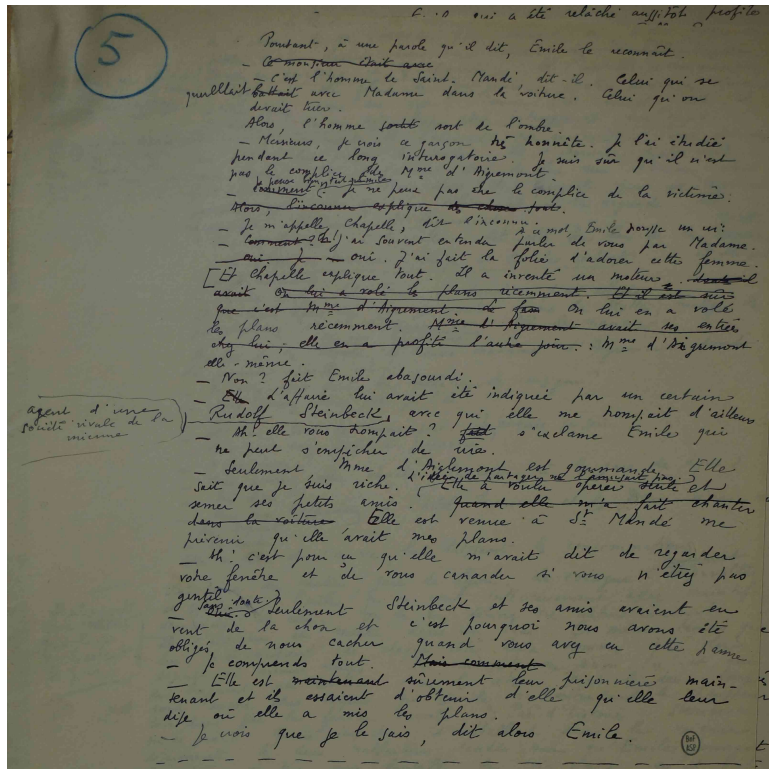 5
qui a été relâché aussitôt, profite
Pourtant, à une parole qu'il dit, Emile le reconnaît.
Ce monsieur était avec
– C'est l'homme de Saint. Mandé dit-il. Celui qui se
querellait battait avec Madame dans la voiture. Celui qu'on
devait tuer.
Alors, l'homme sortit sort de l'ombre.
– Messieurs, je crois ce garçon très honnête. Je l'ai étudié
pendant ce long interrogatoire. Je suis sûr qu'il n'est
pas le complice de Mme d'Aigremont.
je ne peux pas être le complice de la victime.
Alors, l'inconnu explique tout.
– Je m'appelle, Chapelle, dit l'inconnu.
à ce mot, Emile pousse un cri:
– Comment? j'ai souvent entendu parler de vous par Madame.
– oui. J'ai fait la folie d'adorer cette femme.
[Et Chapelle explique tout. Il a inventé un moteur. dont il
avait On lui a volé les plans récemment. Et il est sûr
que c'est Mme d'Aigremont. On lui en a volé
les plans récemment. Mme d'Aigremont avait ses entrées
chez lui; elle en a profité l'autre jour. : Mme d'Aigremont
elle-même.
– Non? fait Emile abasourdi.
– L'affaire lui avait été indiquée par un certain
Rudolf Steinbeck, avec qui elle me trompait d'ailleurs
agent d'une
société rivale de la
mienne
– Ah! elle vous trompait? s'exclame Emile qui
ne peut s'empêcher de rire.
– Seulement Mme d'Aiglemont est gourmande. Elle
sait que je suis riche. L'idée de partager ne l'amusait pas. Elle a voulu opérer seule et
semer ses petits amis. Quand elle m'a fait chanter
dans la voiture Elle est venue à St Mandé me
prévenir qu'elle avait mes plans.
– Ah! c'est pour ça qu'elle m'avait dit de regarder
votre fenêtre et de vous canarder si vous n'étiez pas
gentil
– Sans doute. Seulement Steinbeck et ses amis avaient eu
vent de la chose et c'est pourquoi nous avons été
obligés de nous cacher quand vous avez eu cette panne
– Je comprends tout. Mais comment
– Elle est maintenant sûrement leur prisonnière main-
tenant et ils essaient d'obtenir d'elle qu'elle leur
dise où elle a mis les plans.
– Je crois que je le sais, dit alors Emile.
BnF
ASP